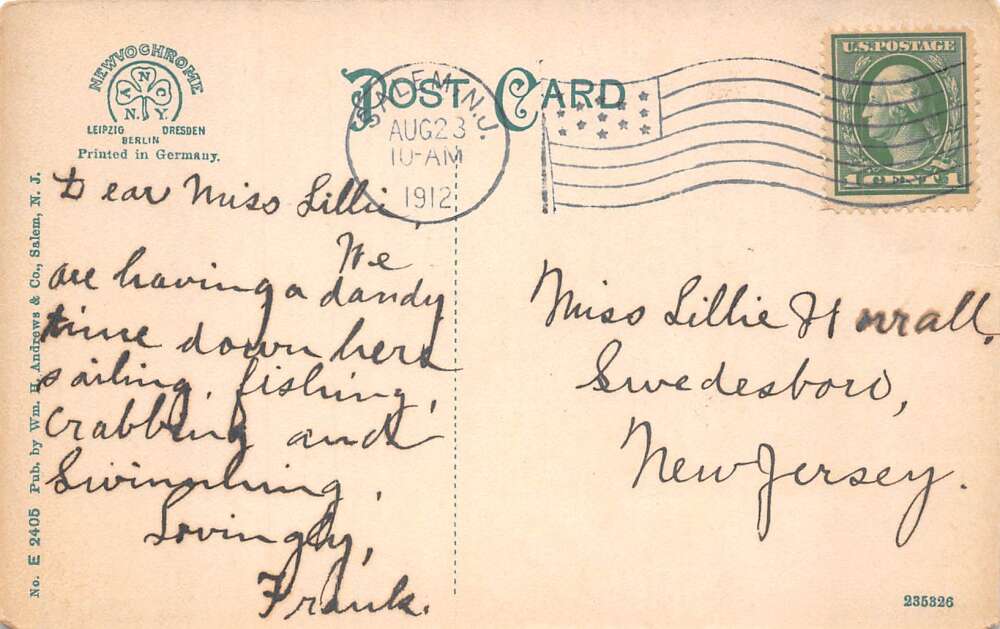 NEWVOCHROME
A N C
N.Y.
LEIPZIG DRESDEN
BERLIN
Printed in Germany.
POST CARD
SALEM, N.J.
AUG 23
10-AM
1912
U.S. POSTAGE
1 CENT 1
Dear Miss Lillie,
We
are having a dandy
time down here
sailing, fishing,
crabbing and
Swimming.
Lovingly,
Frank.
Miss Lillie Horrall,
Swedesboro,
New Jersey.
No. E 2405 Pub. by Wm. H. Andrews & Co., Salem, N. J.
235326